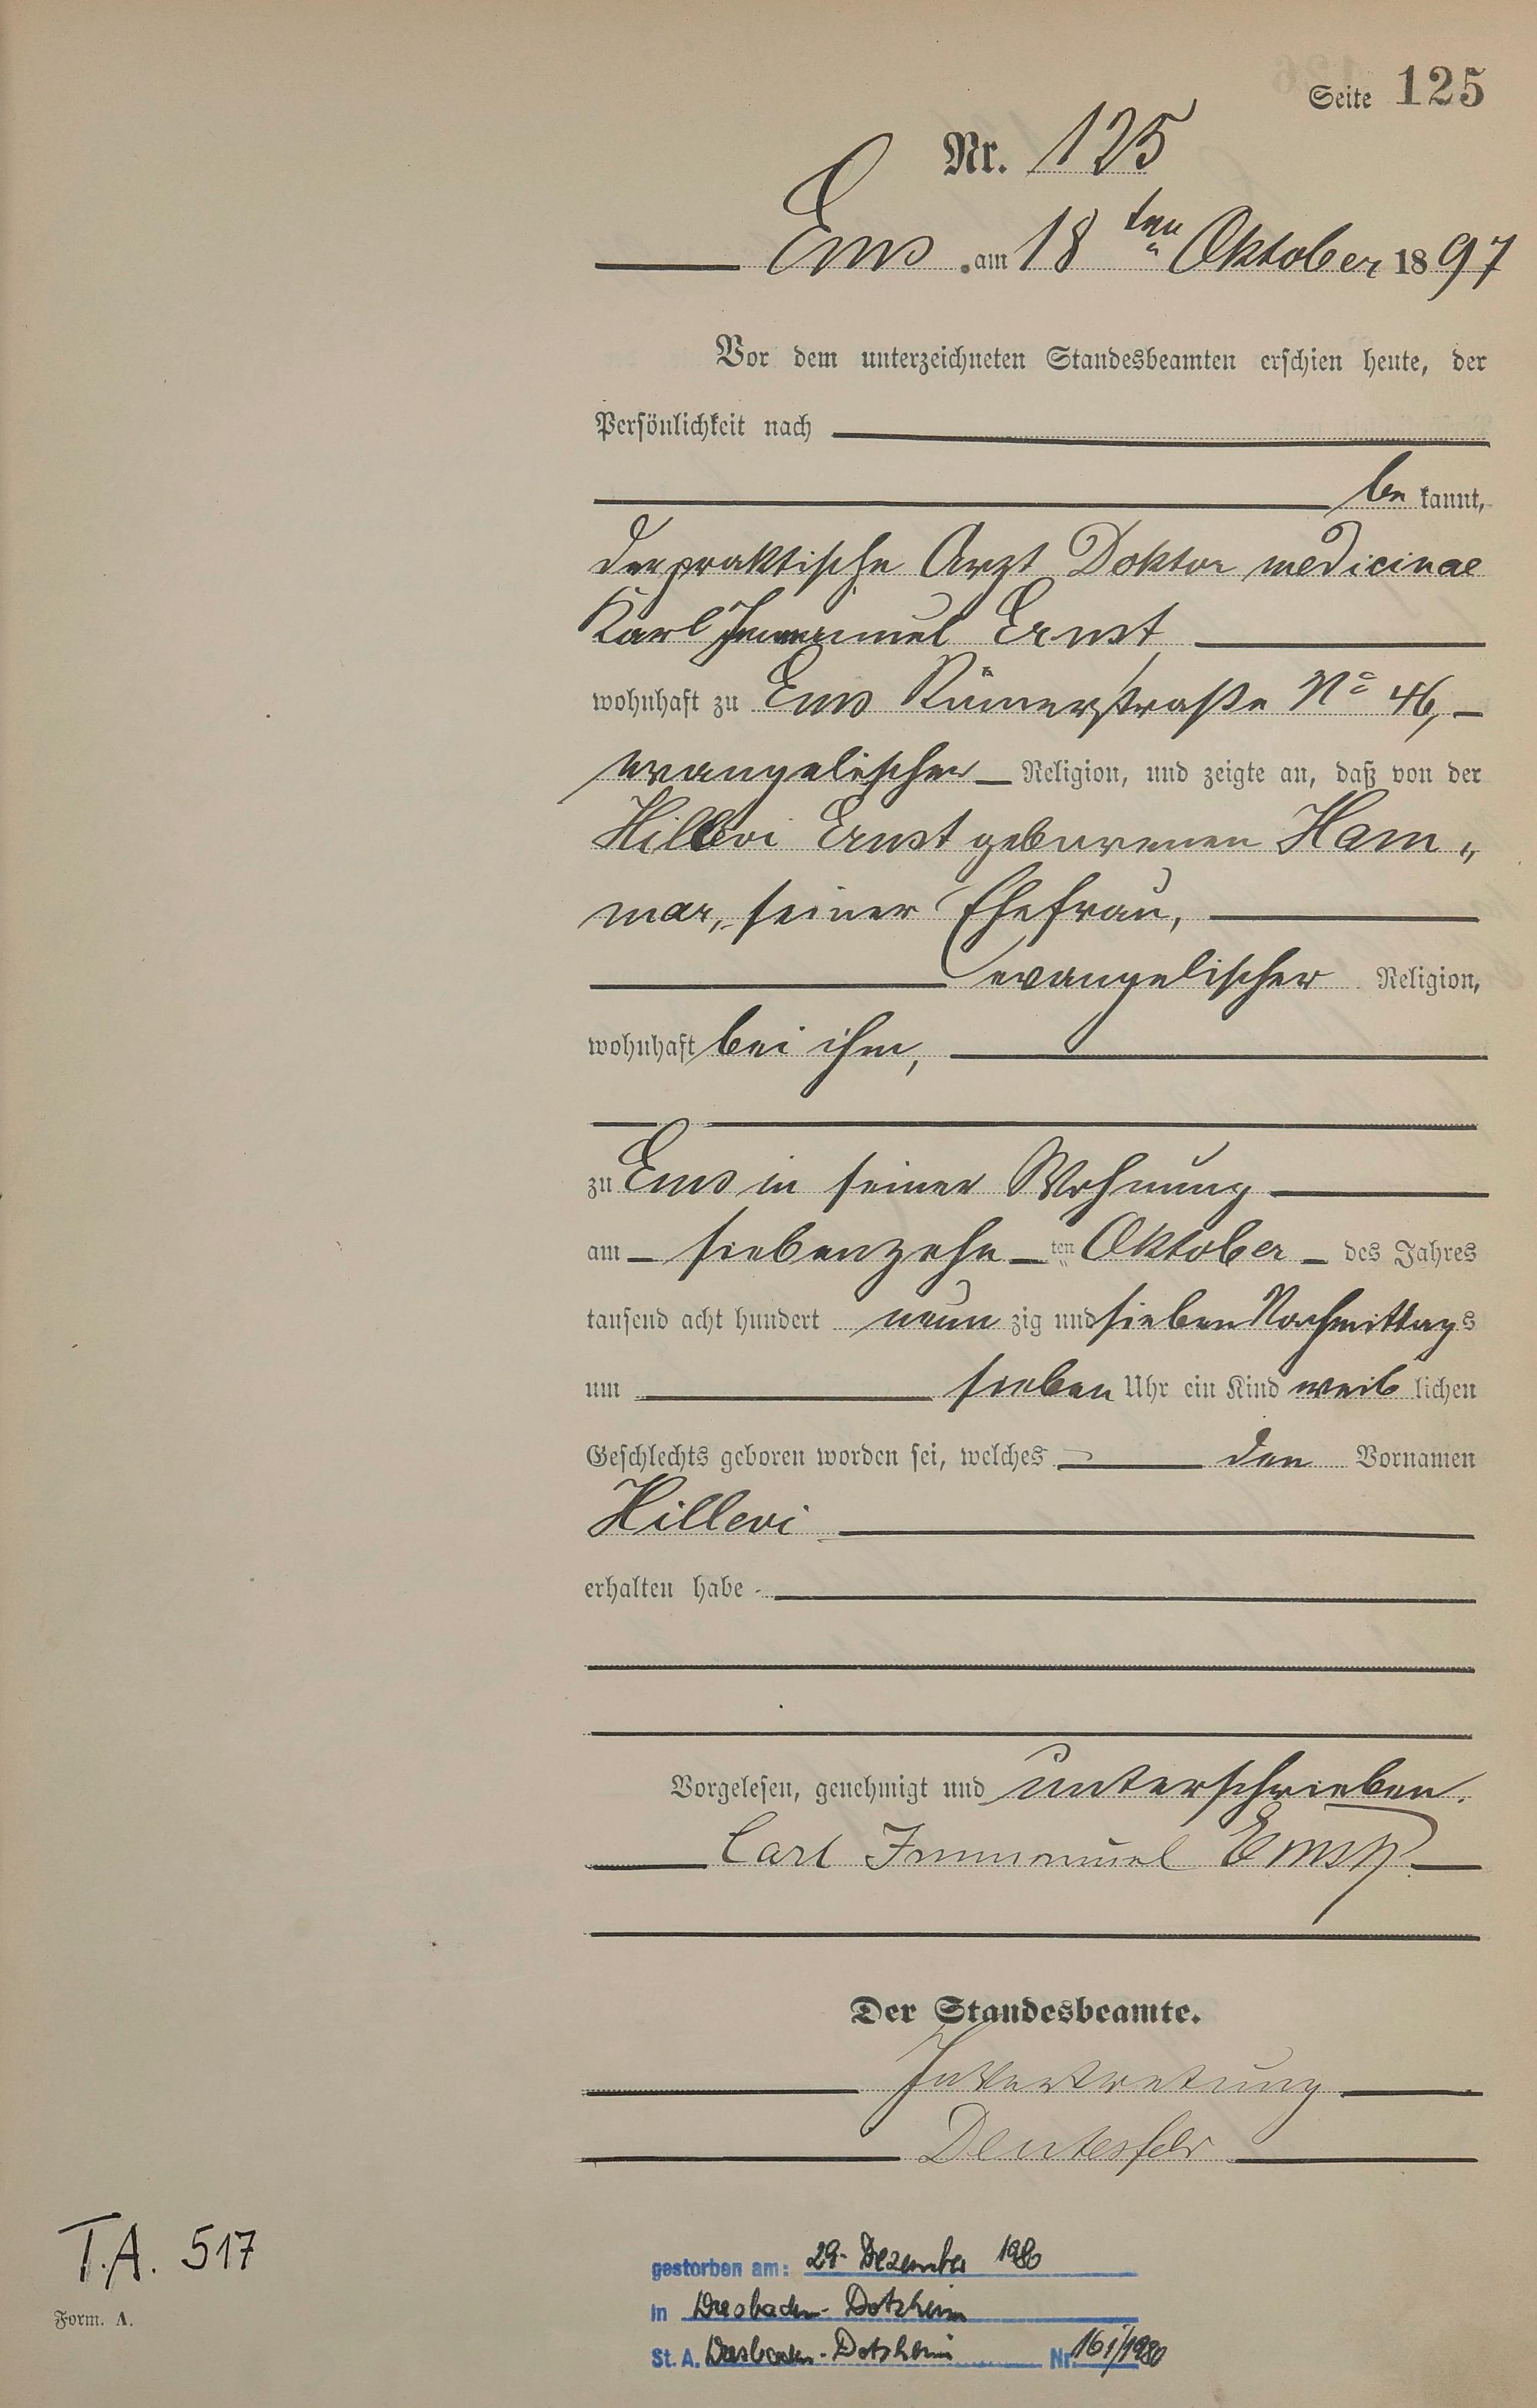 Seite 125
Nr. 125
Ems am 18ten Oktober 1897
Vor dem unterzeichneten Standesbeamten erschien heute, der
Persönlichkeit nach
be kannt,
der praktische Arzt Doktor medicinae
Karl Immanuel Ernst
wohnhaft zu Ems Römerstraße No 46,
evangelischer Religion, und zeigte an, daß von der
Hillevi Ernst geborenen Ham„
mar, seiner Ehefrau,
evangelischer Religion,
wohnhaft bei ihm,
zu Ems in seiner Wohnung
am siebenzehn ten Oktober des Jahres
tausend acht hundert neun zig und sieben Nachmittags
um sieben Uhr ein Kind weib lichen
Geschlechts geboren worden sei, welches den Vornamen
Hillevi
erhalten habe
Vorgelesen, genehmigt und unterschrieben.
Carl Immanuel Ernst
Der Standesbeamte.
In Vertretung
T.A. 517
gestorben am: 29. Dezember 1980
in Wiesbaden-Dotzheim
St. A. Wiesbaden-Dotzheim Nr. 161/1980
Form. A.